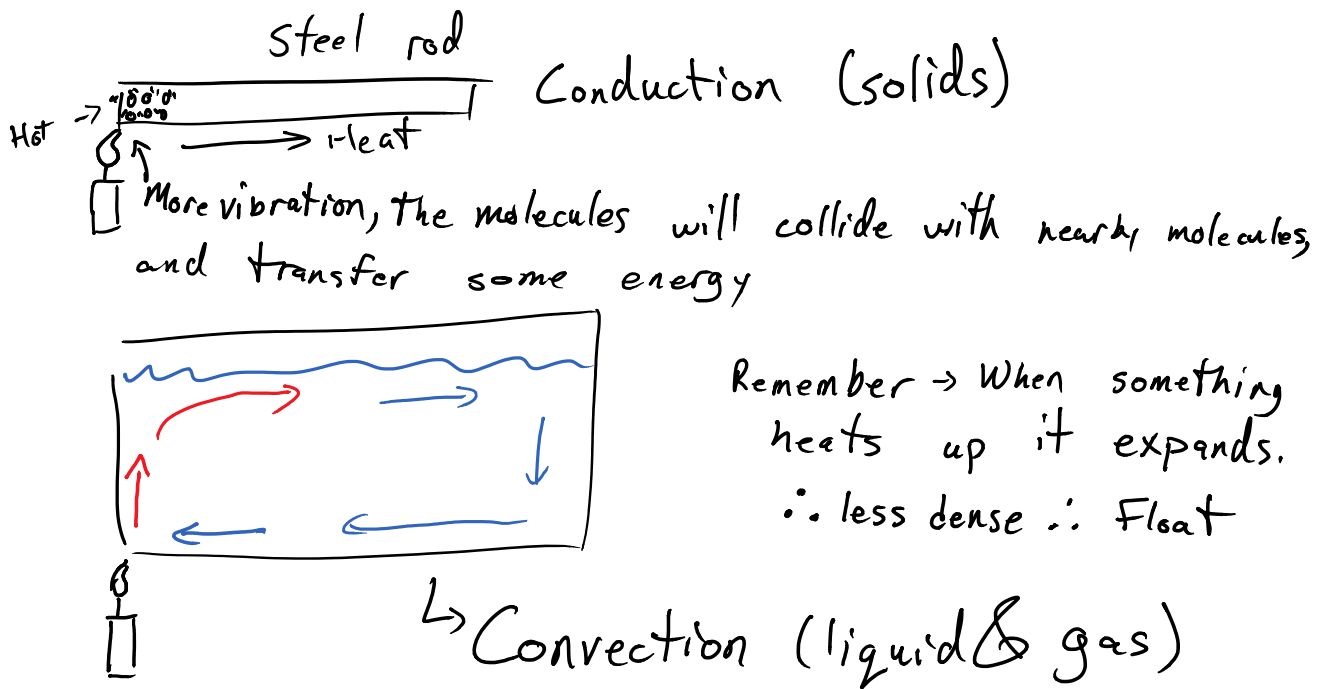 Steel rod
Conduction (solids)
Hot →
→ Heat
More vibration, the molecules will collide with nearby molecules,
and transfer some energy
Remember → When something
heats up it expands.
∴ less dense ∴ Float
↳ Convection (liquid & gas)